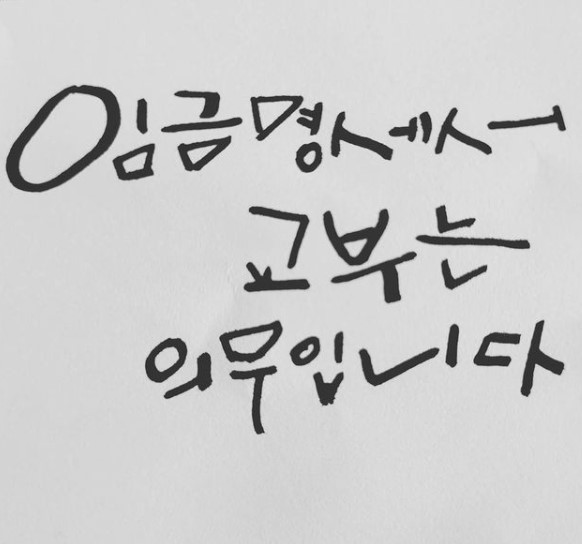 임금명세서
교부는
의무입니다